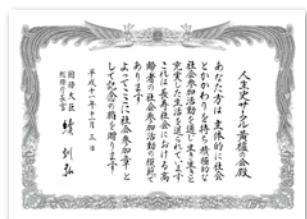 人生史サークル黄櫨の会殿
あなた方は主体的に社会
とかかわりを持ち積極的な
社会参加活動を通し生き生きと
充実した生活を送られています
これは長寿社会における高
齢者の社会参加活動の模範で
あります
よってここに社会参加章と
して記念の楯を贈ります
平成十一年十一月三日
国務大臣
総務庁長官 續訓弘